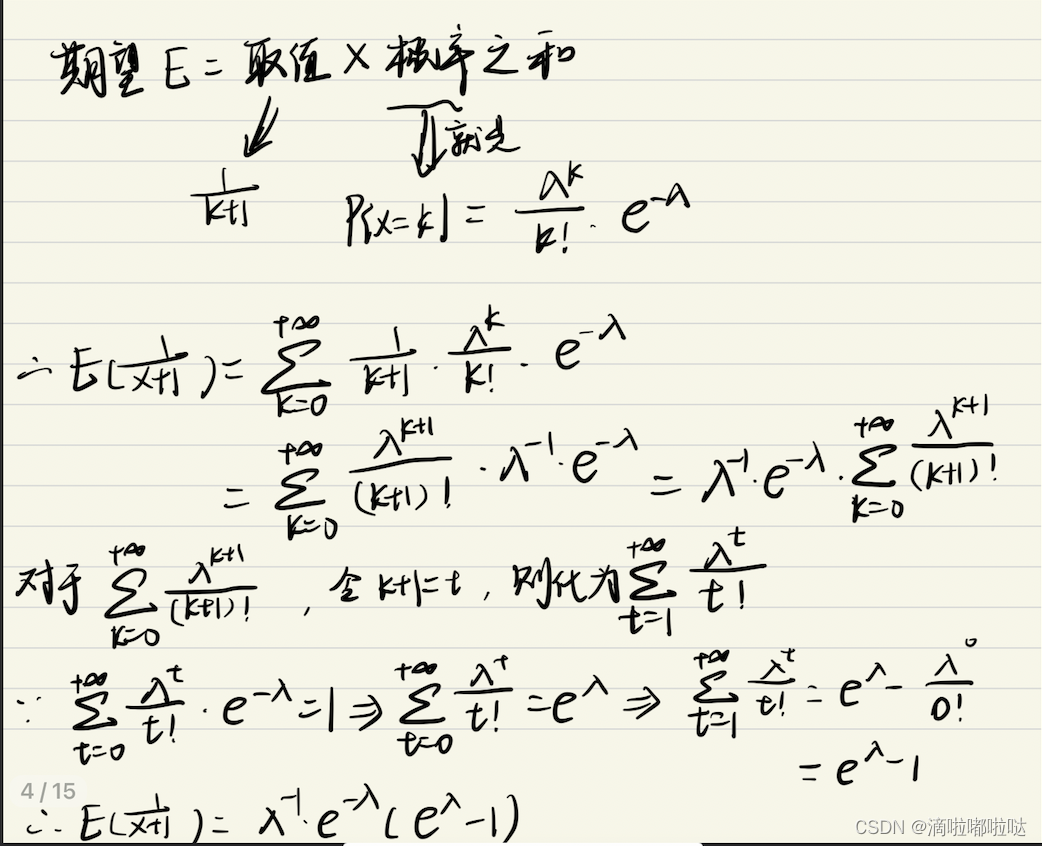 期望 E = 取值 × 概率之和
就是
1/(k+1) P{X=k} = λ^k/k! · e^-λ
∴ E(1/(X+1)) = ∑_{k=0}^{+∞} 1/(k+1) · λ^k/k! · e^-λ
= ∑_{k=0}^{+∞} λ^{k+1}/(k+1)! · λ^-1 · e^-λ = λ^-1 · e^-λ · ∑_{k=0}^{+∞} λ^{k+1}/(k+1)!
对于 ∑_{k=0}^{+∞} λ^{k+1}/(k+1)! , 令 k+1=t, 则化为 ∑_{t=1}^{+∞} λ^t/t!
∵ ∑_{t=0}^{+∞} λ^t/t! · e^-λ = 1 ⇒ ∑_{t=0}^{+∞} λ^t/t! = e^λ ⇒ ∑_{t=1}^{+∞} λ^t/t! = e^λ - λ^0/0!
= e^λ - 1
4/15
∴ E(1/(X+1)) = λ^-1 · e^-λ (e^λ - 1)
CSDN @滴啦嘟啦哒